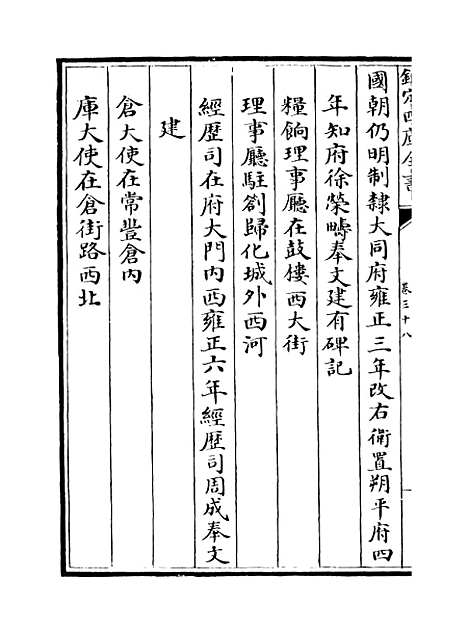 欽定四庫全書
卷三十八
國朝仍明制隸大同府雍正三年改右衛置朔平府四
年知府徐榮疇奉文建有碑記
糧餉理事廳在鼓樓西大街
理事廳駐劄歸化城外西河
經歷司在府大門內西雍正六年經歷司周成奉文
建
倉大使在常豐倉內
庫大使在倉街路西北